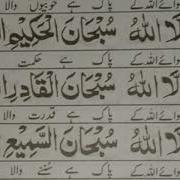 وائے اللہ کے پاک ہے خوبیوں والا
لَّا اللهُ سُبْحَانَ الْحَكِيْمِ
وائے اللہ کے پاک ہے حکمت
لَّا اللهُ سُبْحَانَ الْقَادِرِ
وائے اللہ کے پاک ہے قدرت والا
لَّا اللهُ سُبْحَانَ السَّمِيْعِ
وائے اللہ کے پاک ہے سننے والا